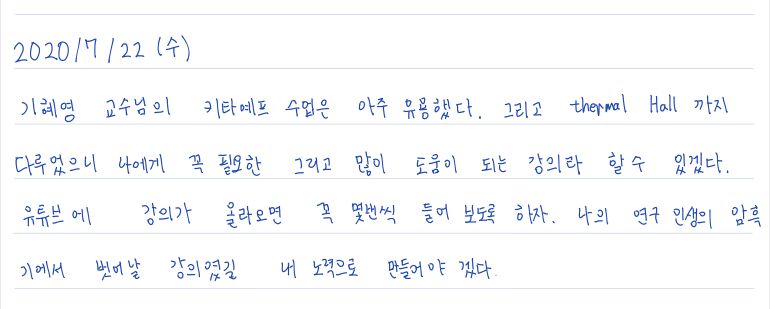 2020/7/22 (수)
기혜영 교수님의 키타예프 수업은 아주 유용했다. 그리고 thermal Hall 까지
다루었으니 나에게 꼭 필요한 그리고 많이 도움이 되는 강의라 할 수 있겠다.
유튜브에 강의가 올라오면 꼭 몇번씩 들어 보도록 하자. 나의 연구 인생의 암흑
기에서 벗어날 강의였길 내 노력으로 만들어야 겠다.